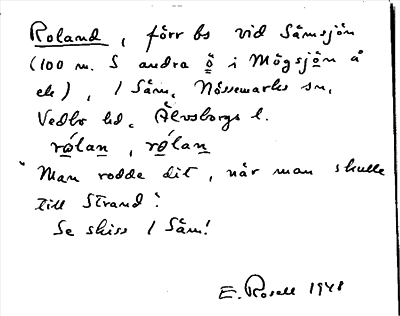 Roland, förr bs vid Sämsjön
(100 m. S andra ö i Mögsjön å
ek), 1 Säm, Nössemarks sn,
Vedbo hd, Älvsborgs l.
rólan, rólan
"Man rodde dit, når man skulle
till Strand".
Se skiss 1 Säm!
E. Rosell 1948